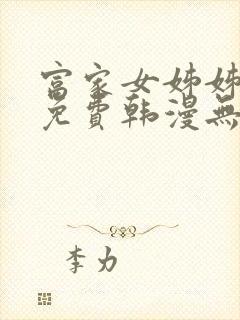 富家女姊姊
免費韩漫無
李力